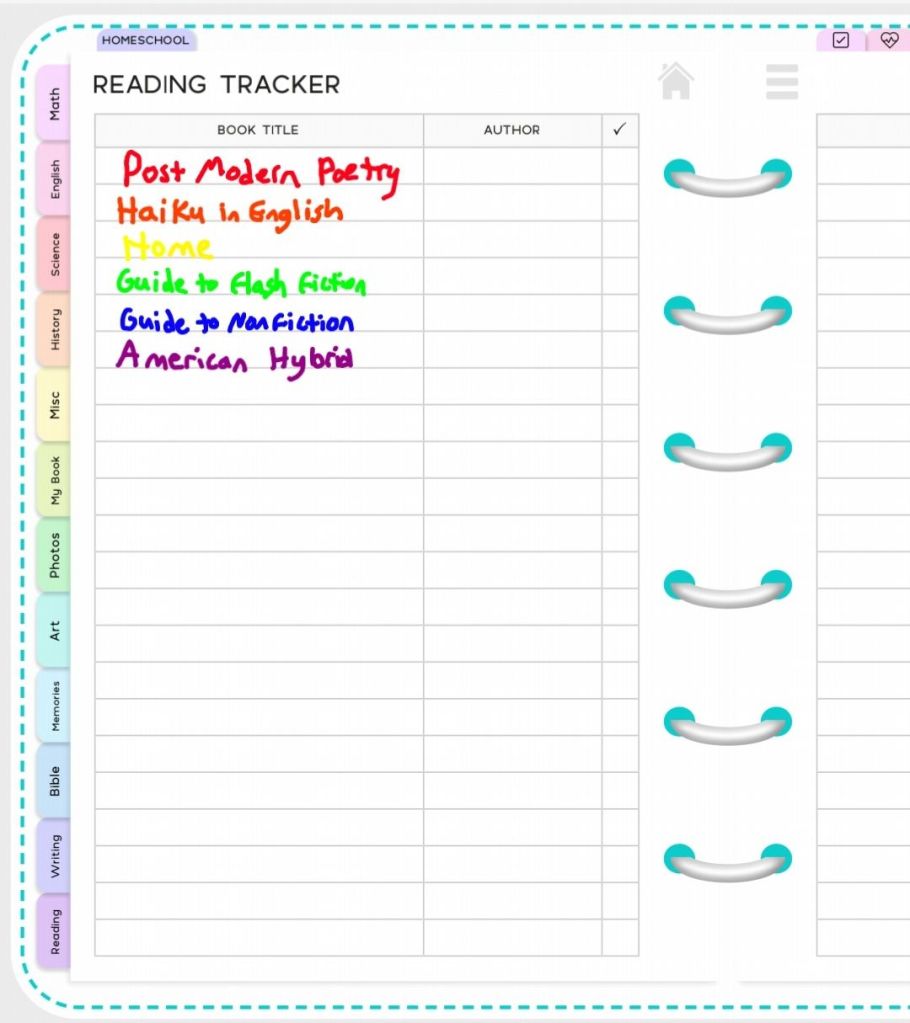 HOMESCHOOL
READING TRACKER
BOOK TITLE AUTHOR ✓
Post Modern Poetry
Haiku in English
Home
Guide to Flash Fiction
Guide to Nonfiction
American Hybrid
Math
English
Science
History
Misc
My Book
Photos
Art
Memories
Bible
Writing
Reading